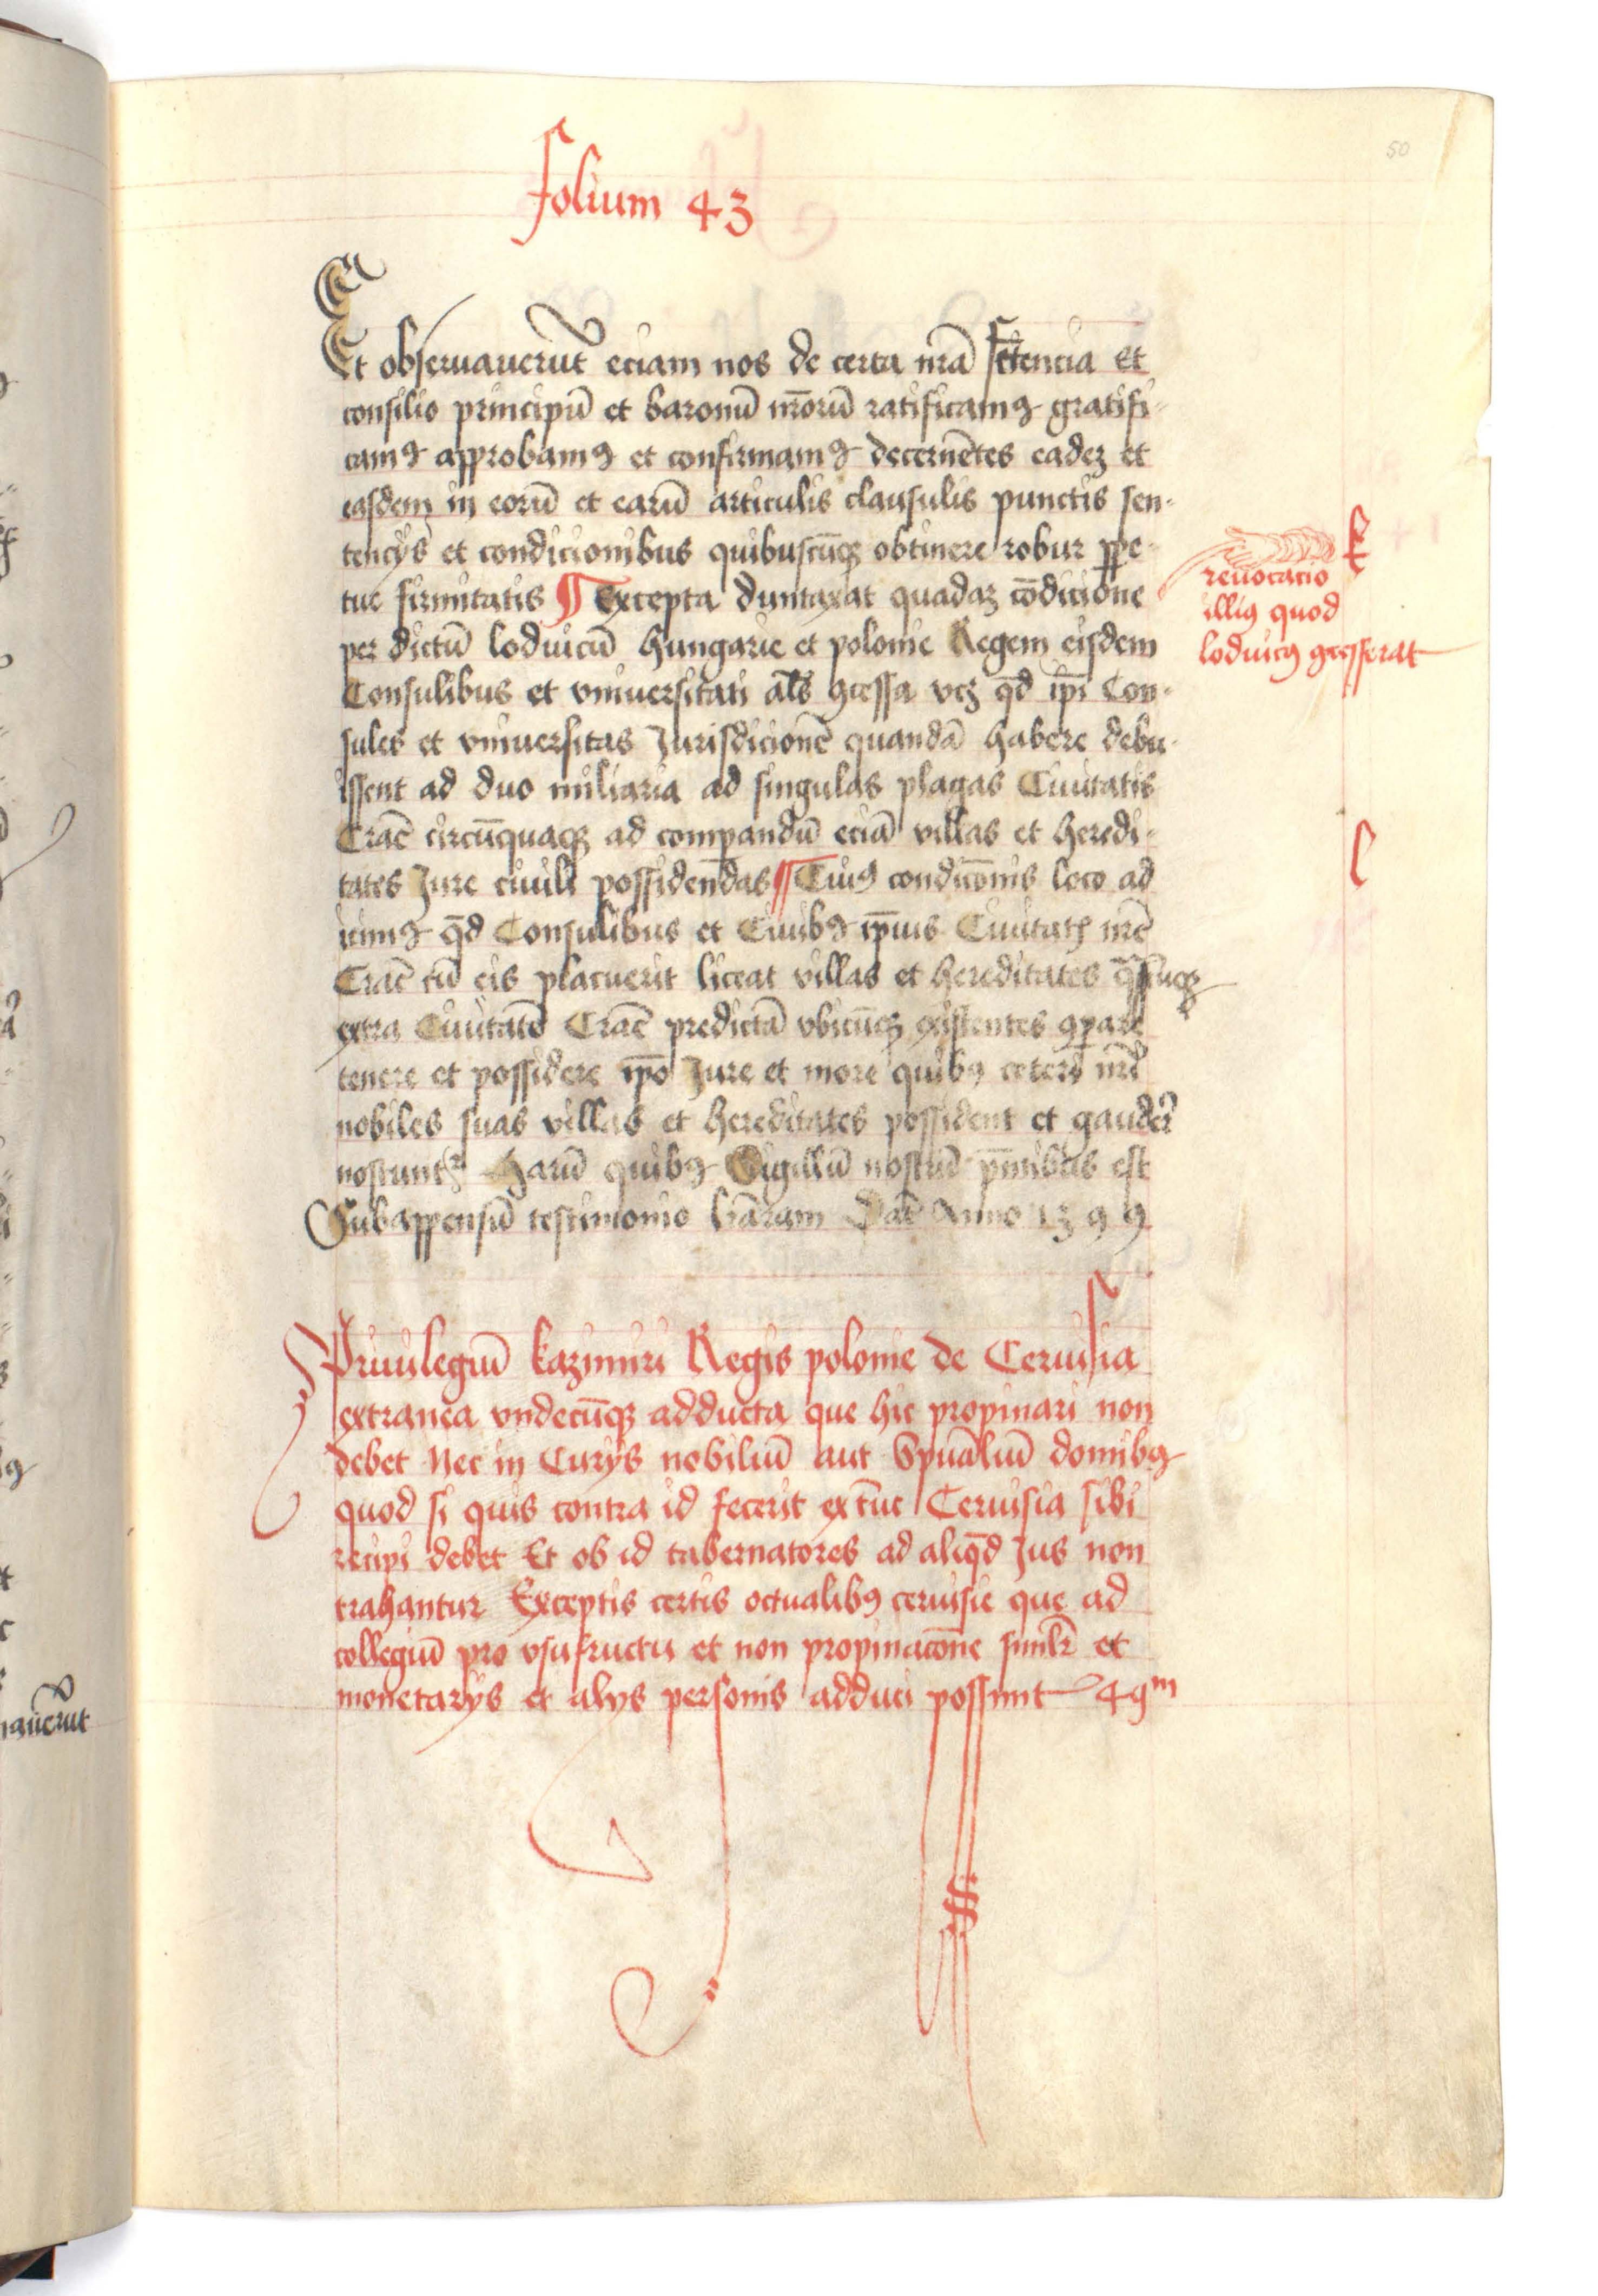 folium 43
50
Et obseruauerūt eciam nos de certa nr̄a sciencia Et
consilio principū et baronū nr̄orū ratificamꝰ gratifi-
camꝰ approbamꝰ et confirmamꝰ decernētes eadeʒ et
easdem in eorū et earū articulis clausulis punctis sen-
tencijs et condicionibus quibuscūqʒ obtinere robur ꝑpe-
tue firmitatis ¶ Excepta duntaxat quadaʒ cōdicione
per dictū loduicū hungarie et polonie Regem eisdem
Consulibus et vniuersitati al̄s ꝯcessa vcʒ qd̄ ip̄i Con-
sules et vniuersitas Jurisdicionē quandā habere debu-
issent ad duo miliaria ad singulas plagas Ciuitatis
Crac̄ circūquaqʒ ad compandū eciā villas et heredi-
tates Jure ciuili possiden̄das ¶ Cuiꝰ condicōnis loco ad
iimꝰ qd̄ Consulibus et Ciuibꝰ ip̄ius Ciuitatis nr̄e
Crac̄ cū eis placuerit liceat villas et hereditates
extra Ciuitatē Crac̄ predictā vbicūqʒ existentes ꝯparare
tenere et possidere ip̄o Jure et more quibꝰ ceteri nr̄i
nobiles suas villas et hereditates possident et
noscunt᷑ harū quibꝰ Sigillū nostrū pn̄tibus est
Subappensū testimonio līaram Dat̄ Anno 1399
k
reuocacio
illiꝰ quod
loduicꝰ ꝯcesserat
l
Priuilegiū kazimiri Regis polonie de Ceruisia
extranea vndecūqʒ adducta que hic propinari non
debet Nec in Curijs nobiliū aut Spūaliū domibꝰ
quod si quis contra id fecerit ex tūc Ceruisia sibi
recipi debet Et ob id tabernatores ad aliqd̄ Jus non
trahantur Exceptis certis octualibꝰ ceruisie que ad
collegiū pro vsufructu et non propinacōne simil̄r et
monetarijs et alijs personis adduci possunt 49m
auerūt